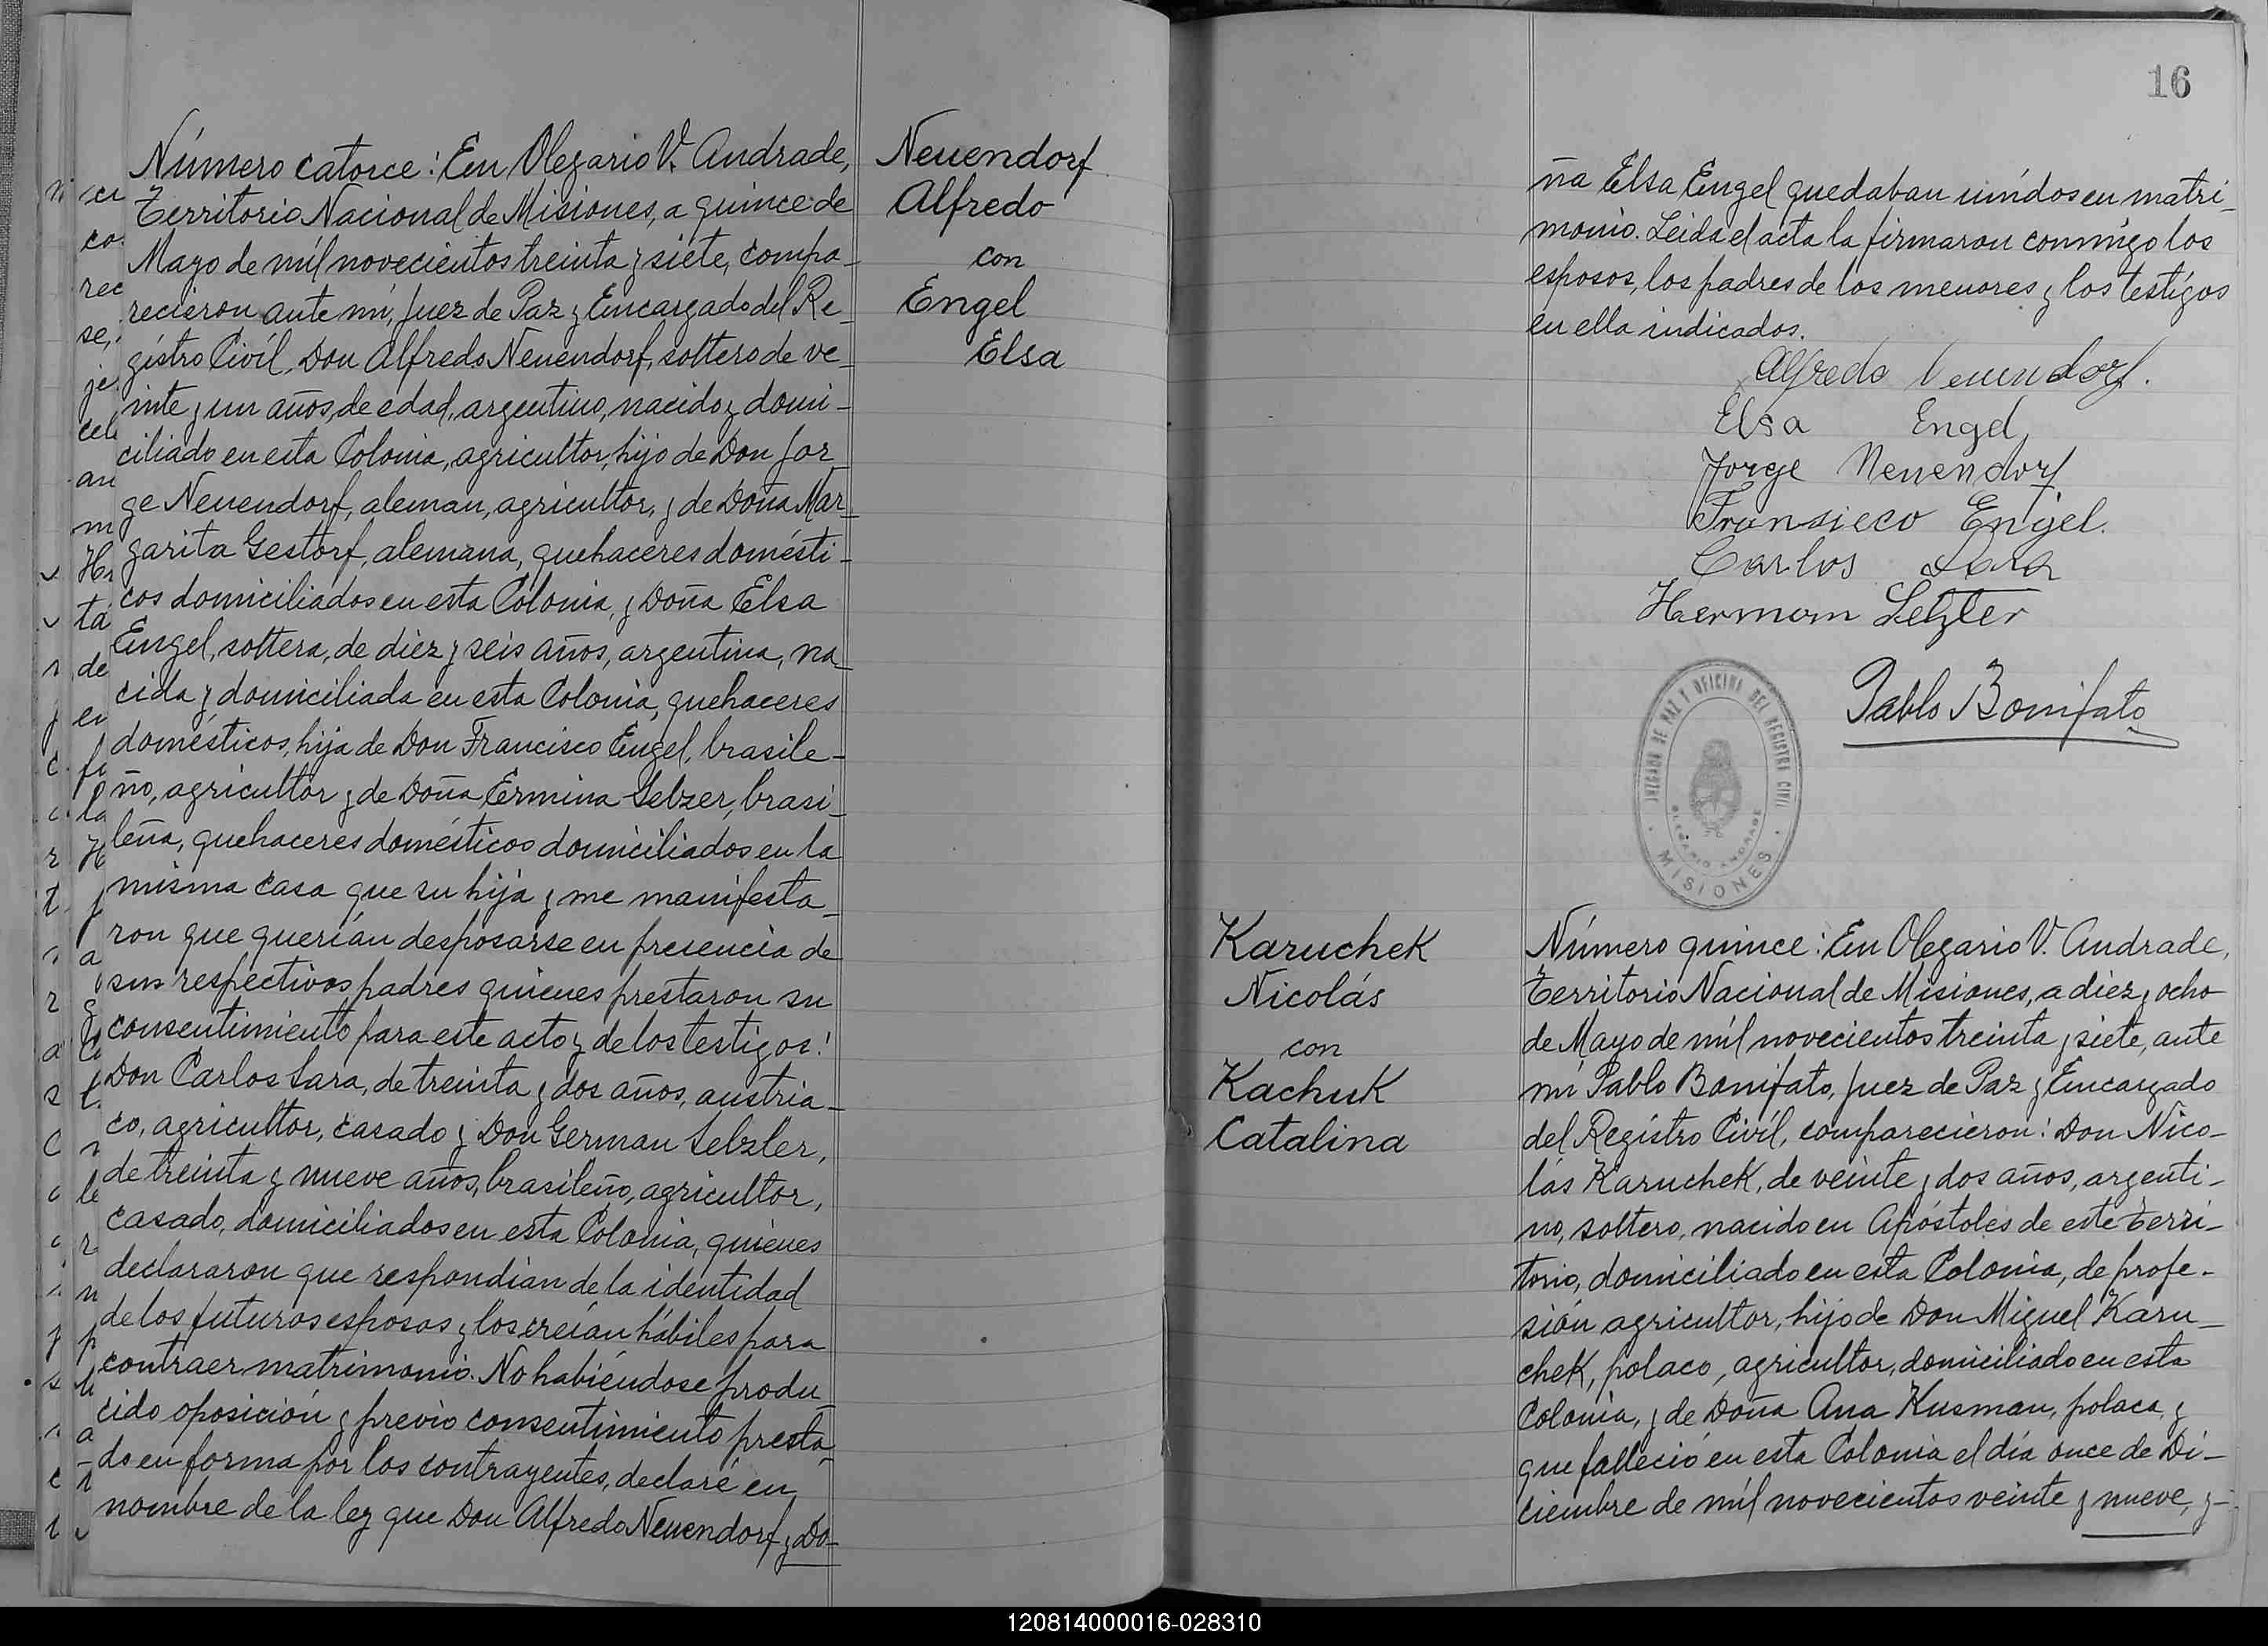 Número catorce: En Olegario V. Andrade,
Territorio Nacional de Misiones, a quince de
Mayo de mil novecientos treinta y siete, compa-
recieron ante mí, Juez de Paz y Encargado del Re-
gistro Civil, Don Alfredo Neuendorf, soltero de ve-
inte y un años, de edad, argentino, nacido y domi-
ciliado en esta Colonia, agricultor, hijo de Don Jor-
ge Neuendorf, aleman, agricultor, y de Doña Mar-
garita Gestorf, alemana, quehaceres domésti-
cos domiciliados en esta Colonia, y Doña Elsa
Engel, soltera, de diez y seis años, argentina, na-
cida y domiciliada en esta Colonia, quehaceres
domésticos, hija de Don Francisco Engel, brasile-
ño, agricultor y de Doña Ermina Selzer, brasi-
leña, quehaceres domésticos domiciliados en la
misma casa que su hija y me manifesta-
ron que querían desposarse en presencia de
sus respectivos padres quienes prestaron su
consentimiento para este acto y de los testigos:
Don Carlos Sara, de treinta y dos años, austria-
co, agricultor, casado y Don German Selzler,
de treinta y nueve años, brasileño, agricultor,
casado, domiciliados en esta Colonia, quienes
declararon que respondian de la identidad
de los futuros esposos y los creían hábiles para
contraer matrimonio. No habiéndose produ-
cido oposición y previo consentimiento presta-
do en forma por los contrayentes, declaré en
nombre de la ley que Don Alfredo Neuendorf y Do-
Neuendorf
Alfredo
con
Engel
Elsa
16
ña Elsa Engel quedaban unidos en matri-
monio. Leida el acta la firmaron conmigo los
esposos, los padres de los menores y los testigos
en ella indicados.
Alfredo Neuendorf.
Elsa Engel
Jorge Neuendorf
Fransieco Engel.
Carlos
Hermam Selzler
Pablo Bonifato
JUZGADO DE PAZ Y OFICINA DEL REGISTRO CIVIL
OLEGARIO ANDRADE
MISIONES
Karuchek
Nicolás
con
Kachuk
Catalina
Número quince: En Olegario V. Andrade,
Territorio Nacional de Misiones, a diez y ocho
de Mayo de mil novecientos treinta y siete, ante
mí Pablo Bonifato, Juez de Paz y Encargado
del Registro Civil, comparecieron: Don Nico-
lás Karuchek, de veinte y dos años, argenti-
no, soltero, nacido en Apóstoles de este Terri-
torio, domiciliado en esta Colonia, de profe-
sión agricultor, hijo de Don Miguel Karu-
chek, polaco, agricultor, domiciliado en esta
Colonia, y de Doña Ana Kusman, polaca, y
que falleció en esta Colonia el día once de Di-
ciembre de mil novecientos veinte y nueve, y-
120814000016-028310